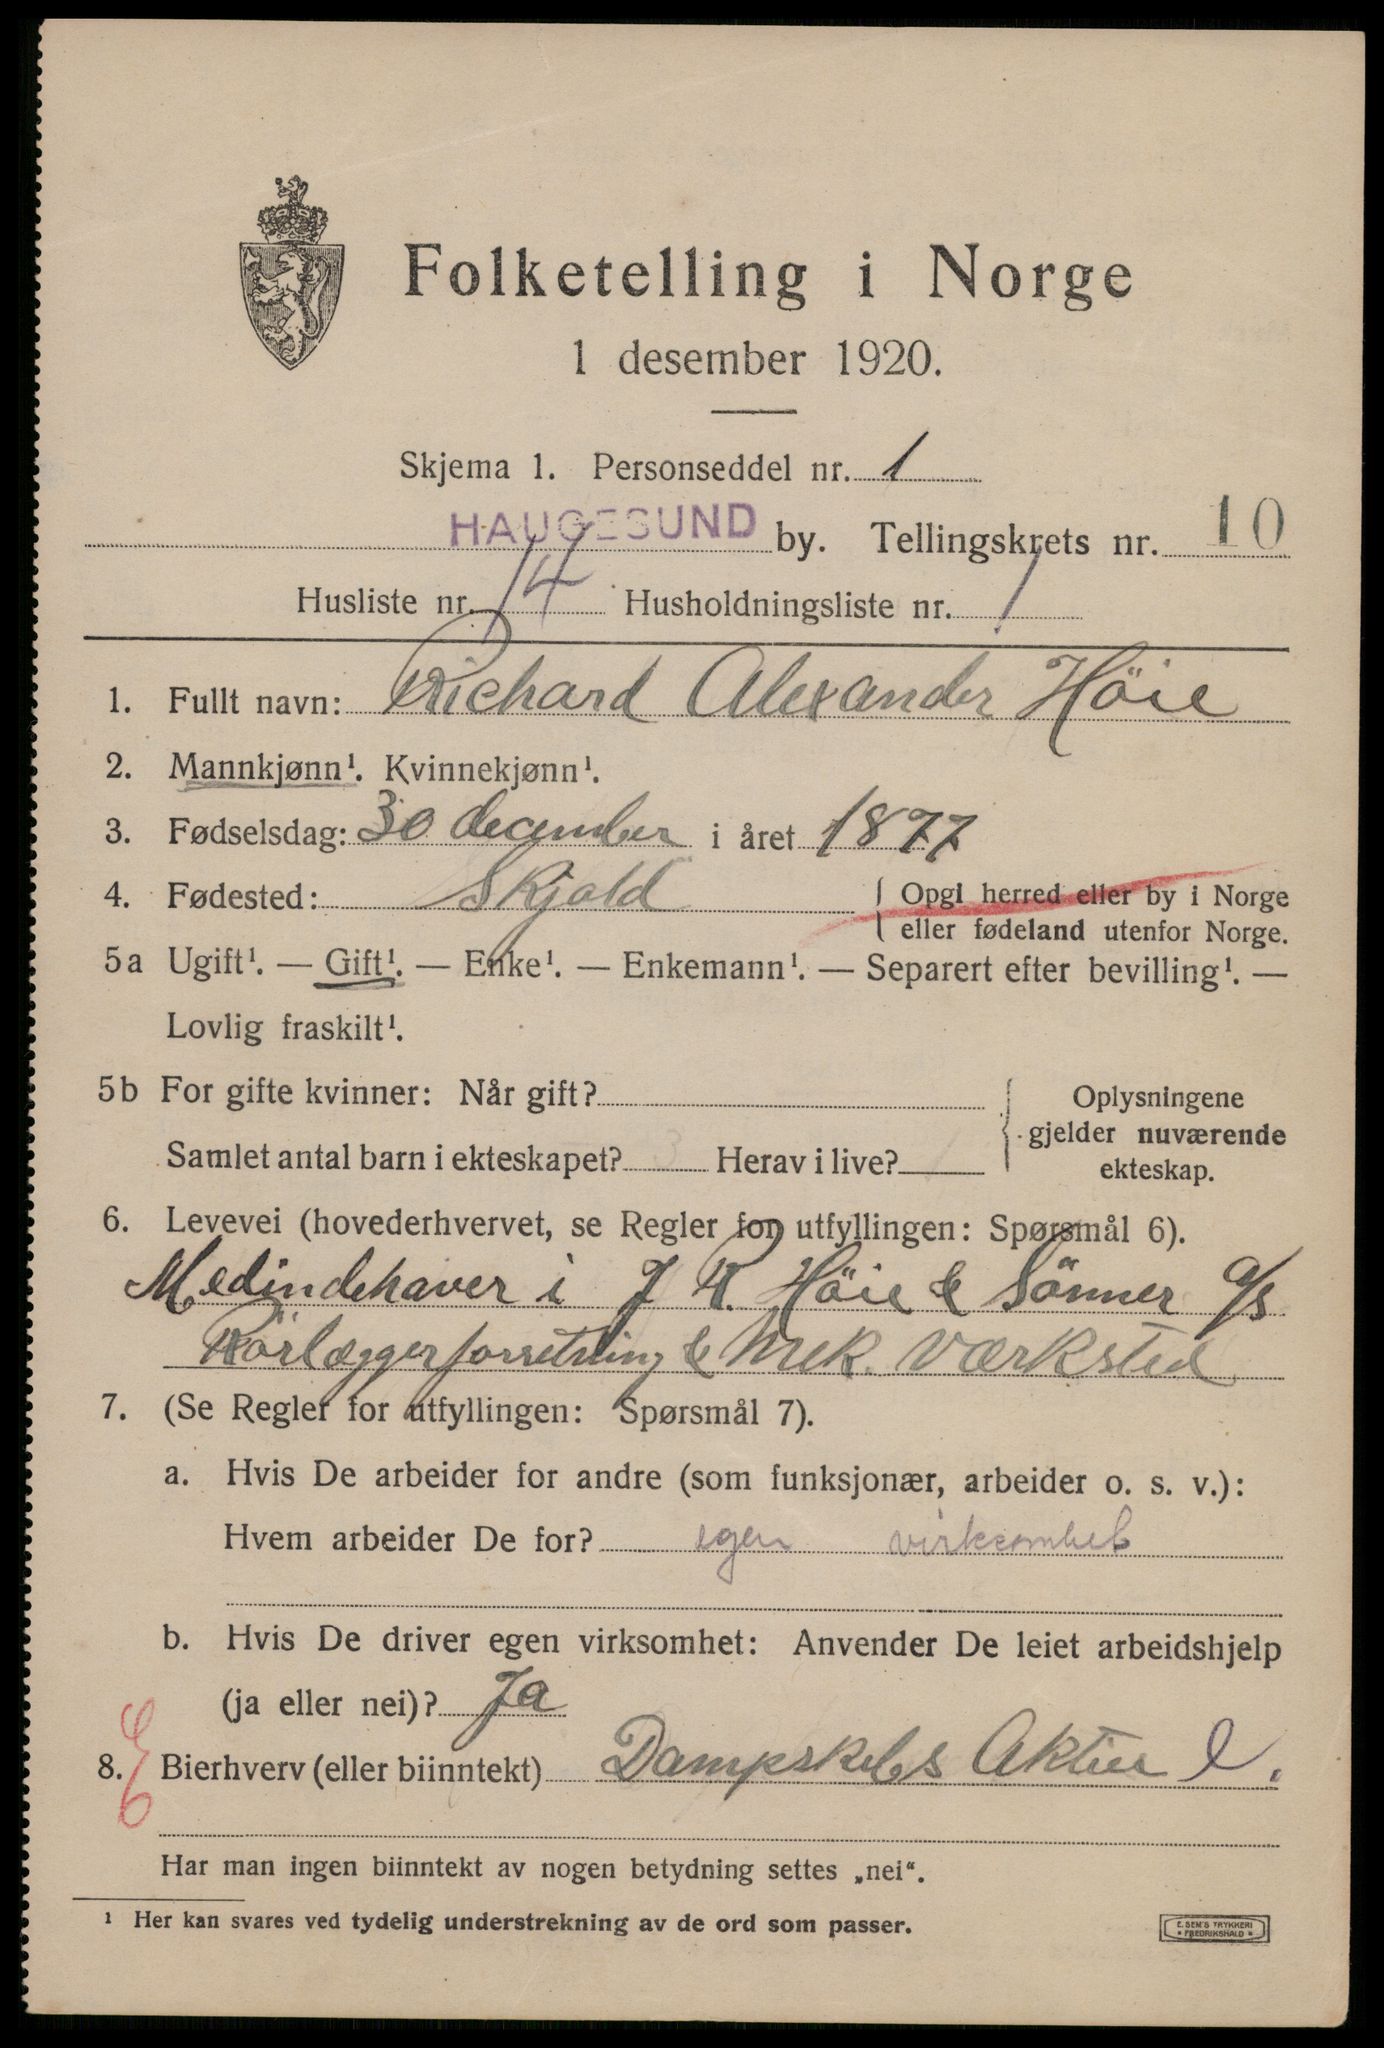 Folketelling i Norge
1 desember 1920.
Skjema 1. Personseddel nr. 1
HAUGESUND by. Tellingskrets nr. 10
Husliste nr. 14 Husholdningsliste nr. 1
1. Fullt navn: Richard Alexander Höie
2. Mannkjønn¹. Kvinnekjønn¹.
3. Fødselsdag: 30 december i året 1877
4. Fødested: Skjold { Opgi herred eller by i Norge
eller fødeland utenfor Norge.
5a Ugift¹. — Gift¹. — Enke¹. — Enkemann¹. — Separert efter bevilling¹. —
Lovlig fraskilt¹.
5b For gifte kvinner: Når gift? { Oplysningene
gjelder nuværende
ekteskap.
Samlet antal barn i ekteskapet? 3 Herav i live?
6. Levevei (hovederhvervet, se Regler for utfyllingen: Spørsmål 6).
Medindehaver i J R. Höie & Sönner a/s
Rörlæggerforretning & Mek. Værksted
7. (Se Regler for utfyllingen: Spørsmål 7).
a. Hvis De arbeider for andre (som funksjonær, arbeider o. s. v.):
Hvem arbeider De for? egen virksomhet
b. Hvis De driver egen virksomhet: Anvender De leiet arbeidshjelp
(ja eller nei)? Ja
8. Bierhverv (eller biinntekt) Dampskibs Aktier
Har man ingen biinntekt av nogen betydning settes „nei“.
¹ Her kan svares ved tydelig understrekning av de ord som passer.
E. SEM'S TRYKKERI
FREDRIKSHALD